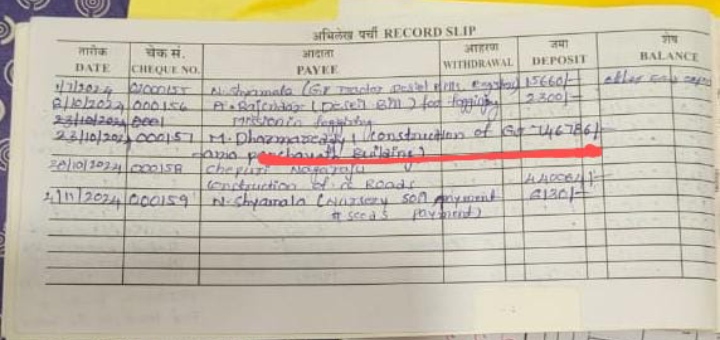 अभिलेख पर्ची RECORD SLIP
तारीख चेक सं. आदाता आहरण जमा शेष
DATE CHEQUE NO. PAYEE WITHDRAWAL DEPOSIT BALANCE
1/7/2024 000155 N. Shyamala (GP Tractor Desiel Bills, 15660/-
8/10/2024 000156 A. Rajendar (Desell Bill) for fogging 2300/-
23/10/2024 0001 fogging
23/10/2024 000157 M. Dharmareddy (Construction of Gr 46786/-
ama panchayath Building)
28/10/2024 000158 Chepuri Nagaraju
Construction of R Roads 440064/-
4/11/2024 000159 N. Shyamala (Nursery Soil payment 6130/-
& seeds payment)